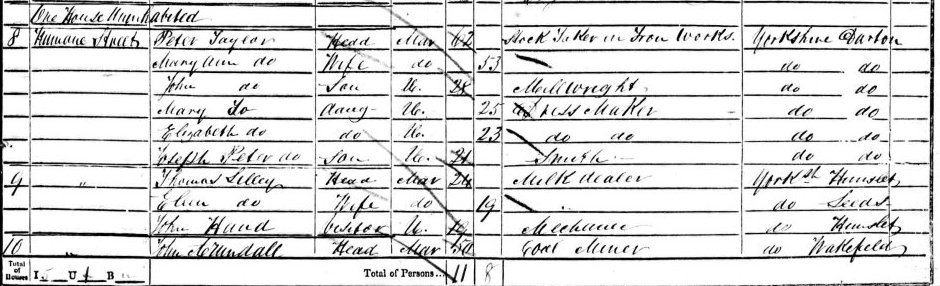 One House Uninhabited
8 Humane Street Peter Taylor Head Mar 62 Stock Taker in Iron Works. Yorkshire Darton
Mary Ann do Wife do 53 do do
John do Son U. 28 Millwright do do
Mary Do daug U. 25 Dress Maker do do
Elizabeth do do U. 23 do do do do
Joseph Peter do Son U. 21 Smith do do
9 " Thomas Lilley Head Mar 24 Milk dealer York Hunslet
Ellen do Wife do 19 do Leeds
John Hand Visitor U. 19 Mechanic do Hunslet
10 John Head Mar 50 Coal Miner do Wakefield
Total of Houses I 5 U 1 B Total of Persons... 11 8